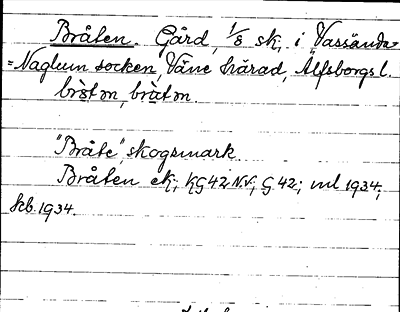 Bråten. Gård, 1/8 sk, i Vassända-
=Naglum socken, Väne härad, Älfsborgs l.
"Bråte", skogsmark
Bråten ek; KG 42 N.V; G. 42; ml 1934;
feb. 1934.